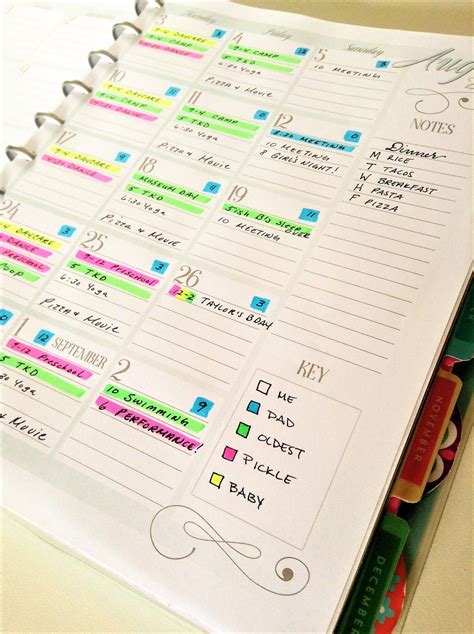 Thursday
Friday
Saturday
Aug
3
9-4 DAYCARE
9-4 CAMP
5 TKD
4
9-4 CAMP
6:30 Yoga
PIZZA & MOVIE
5
10 MEETING
10
9-4 DAYCARE
9-4 CAMP
5 TKD
11
9-4 CAMP
6:30 Yoga
PIZZA & MOVIE
12
8:30 MEETING
8 GIRL'S NIGHT!
17
9-4 DAYCARE
5 TKD
18
MUSEUM DAY
5 TKD
PIZZA & MOVIE
19
FISH B'S SLEEP OVER
10 MEETING
24
9-4 DAYCARE
25
9-12 PRESCHOOL
5 TKD
6:30 Yoga
PIZZA & MOVIE
26
12-2 TAYLOR'S BDAY
3
1 SEPTEMBER
9-12 PRESCHOOL
5 TKD
6:30 Yoga
MOVIE
2
9
10 SWIMMING
6 PERFORMANCE!
NOTES
Dinner
M RICE
T TACOS
W BREAKFAST
H PASTA
F PIZZA
KEY
ME
DAD
OLDEST
PICKLE
BABY
NOVEMBER
DECEMBER